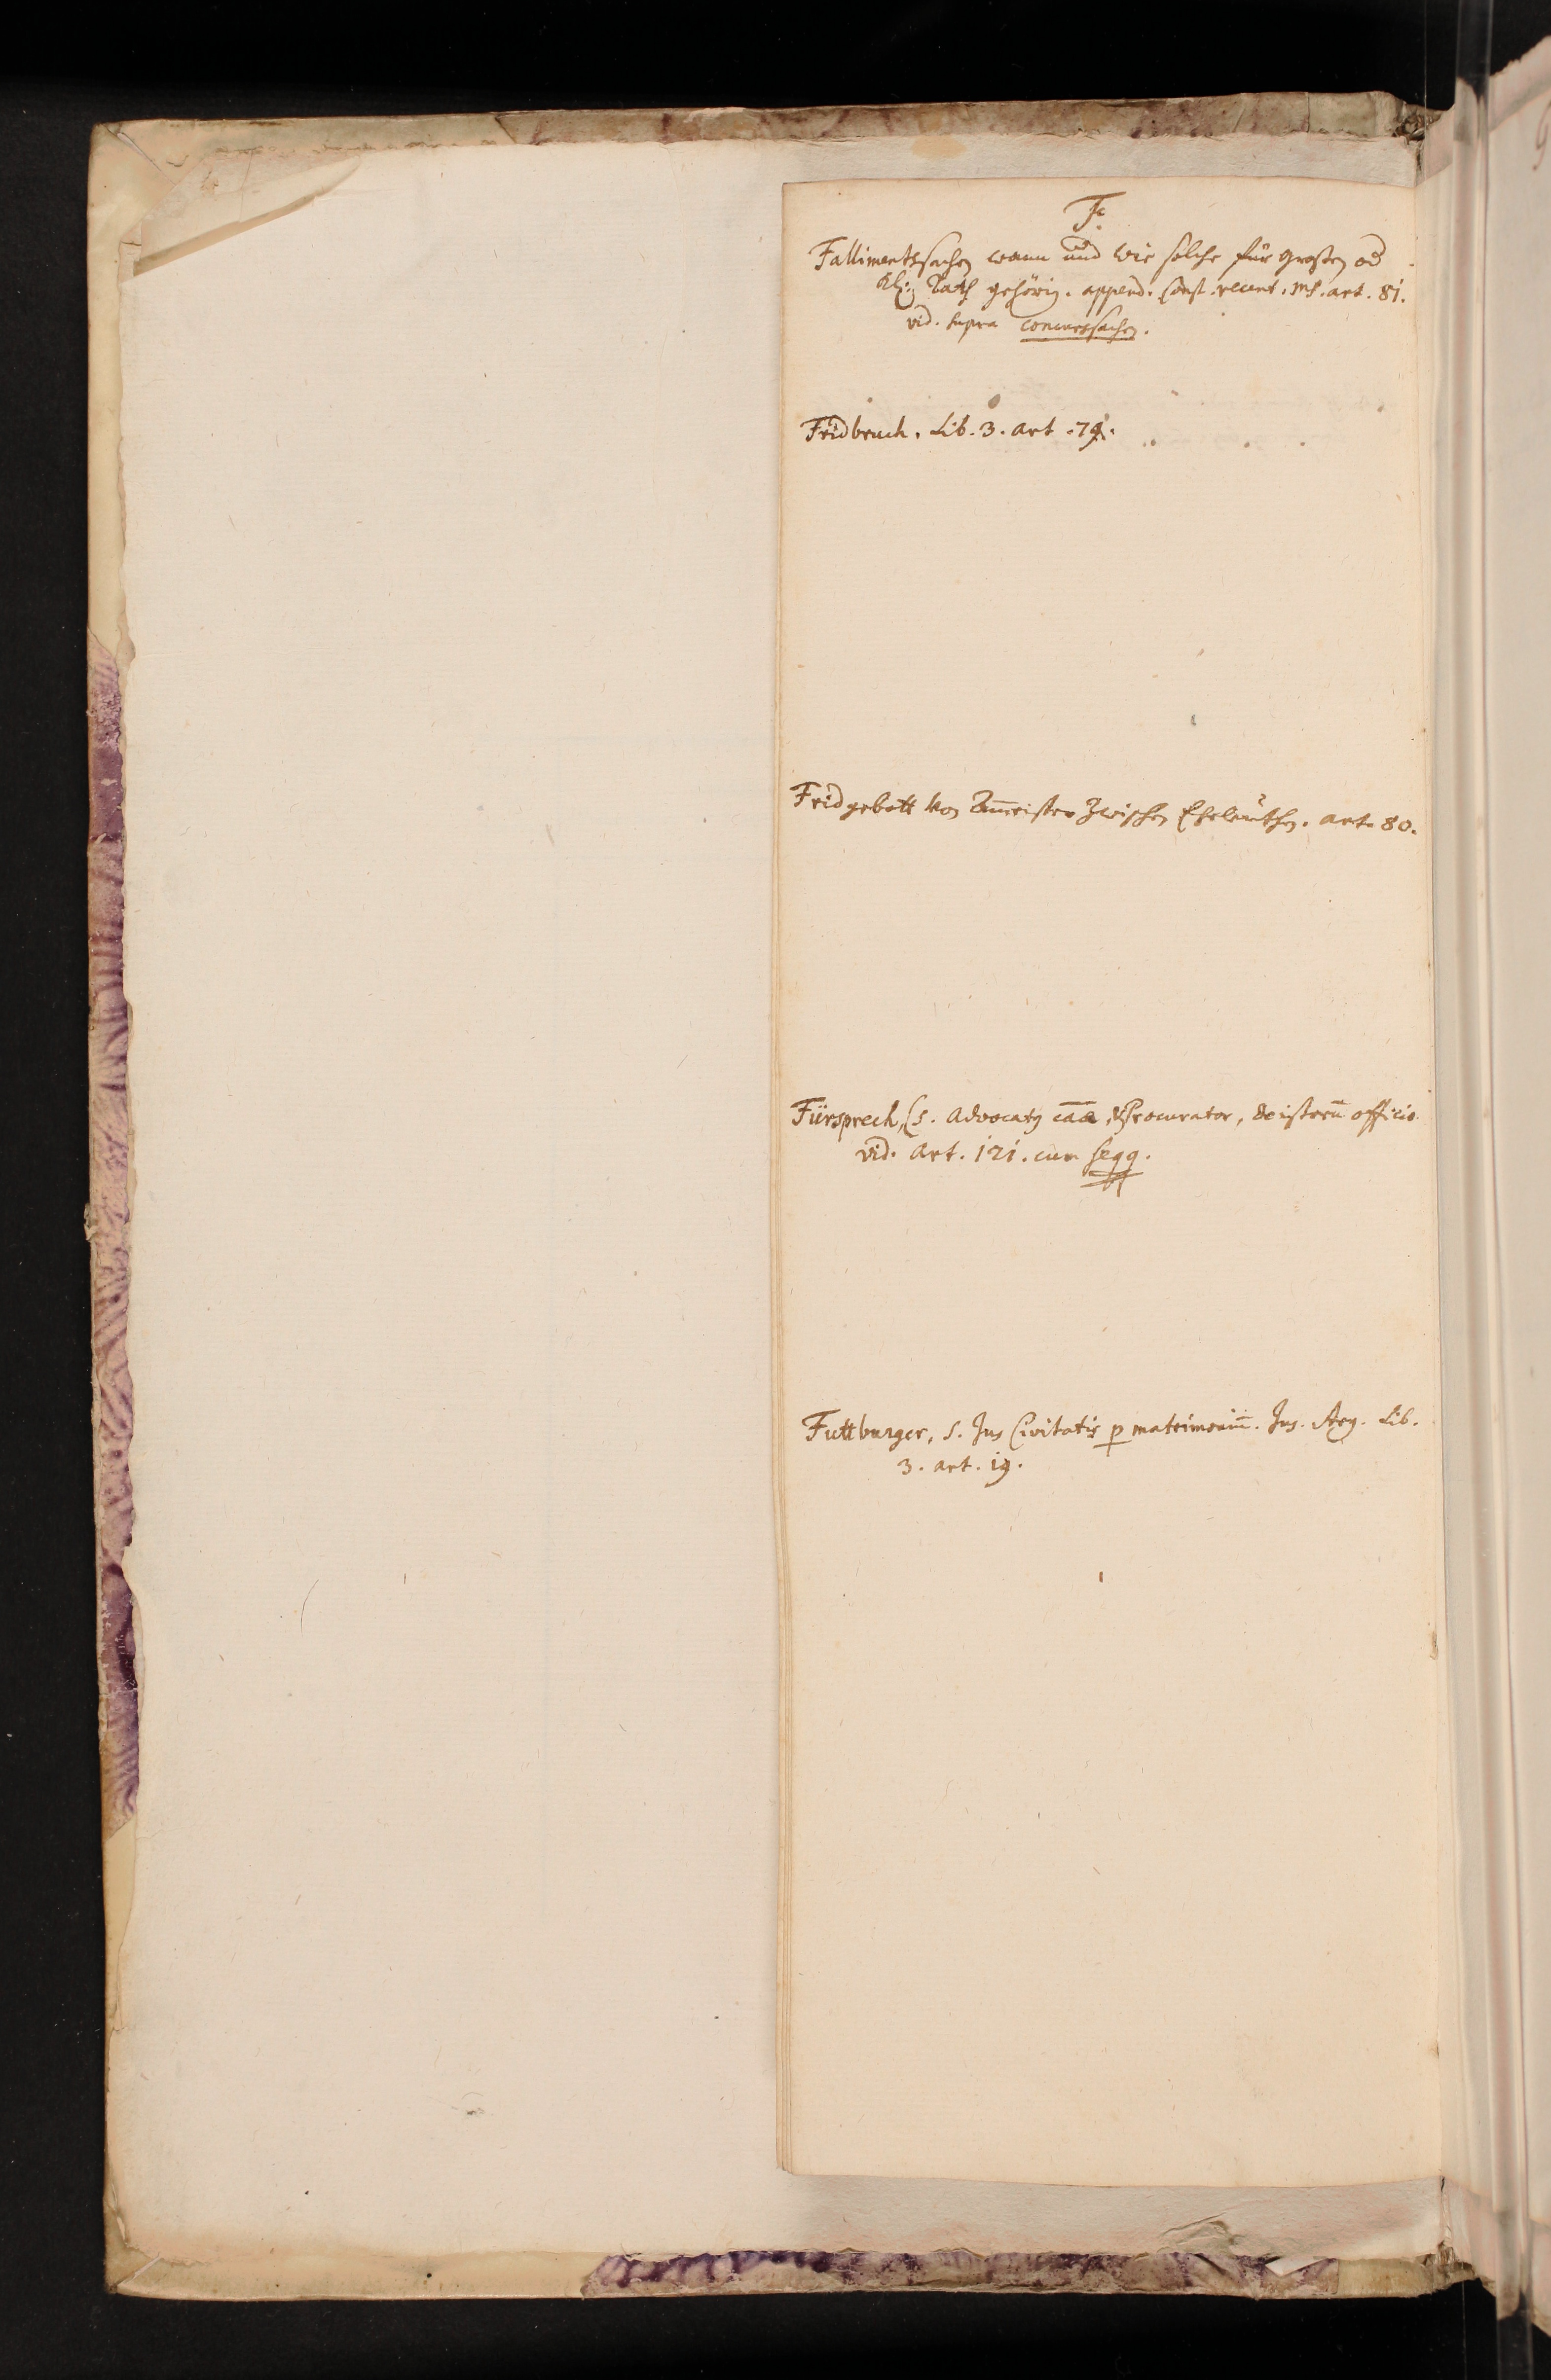 F.
Fallimentssachen wann und wie solche für grosen od
Kl: Rath gehörig. append. Const. recent. Ms. art. 81.
vid. supra concurssachen.
Fridbruch. Lib. 3. art. 79.
Fridgebott von Zunmeister zwischen Eheleüthen. art. 80.
Fürsprech, s. Advocatq caãe, Procurator, de istorũ officio
vid. art. 121. cum seqq.
Futtburger, s. Jus Civitatis p matrimoniũ. Jus. Arg. Lib.
3. art. 19.